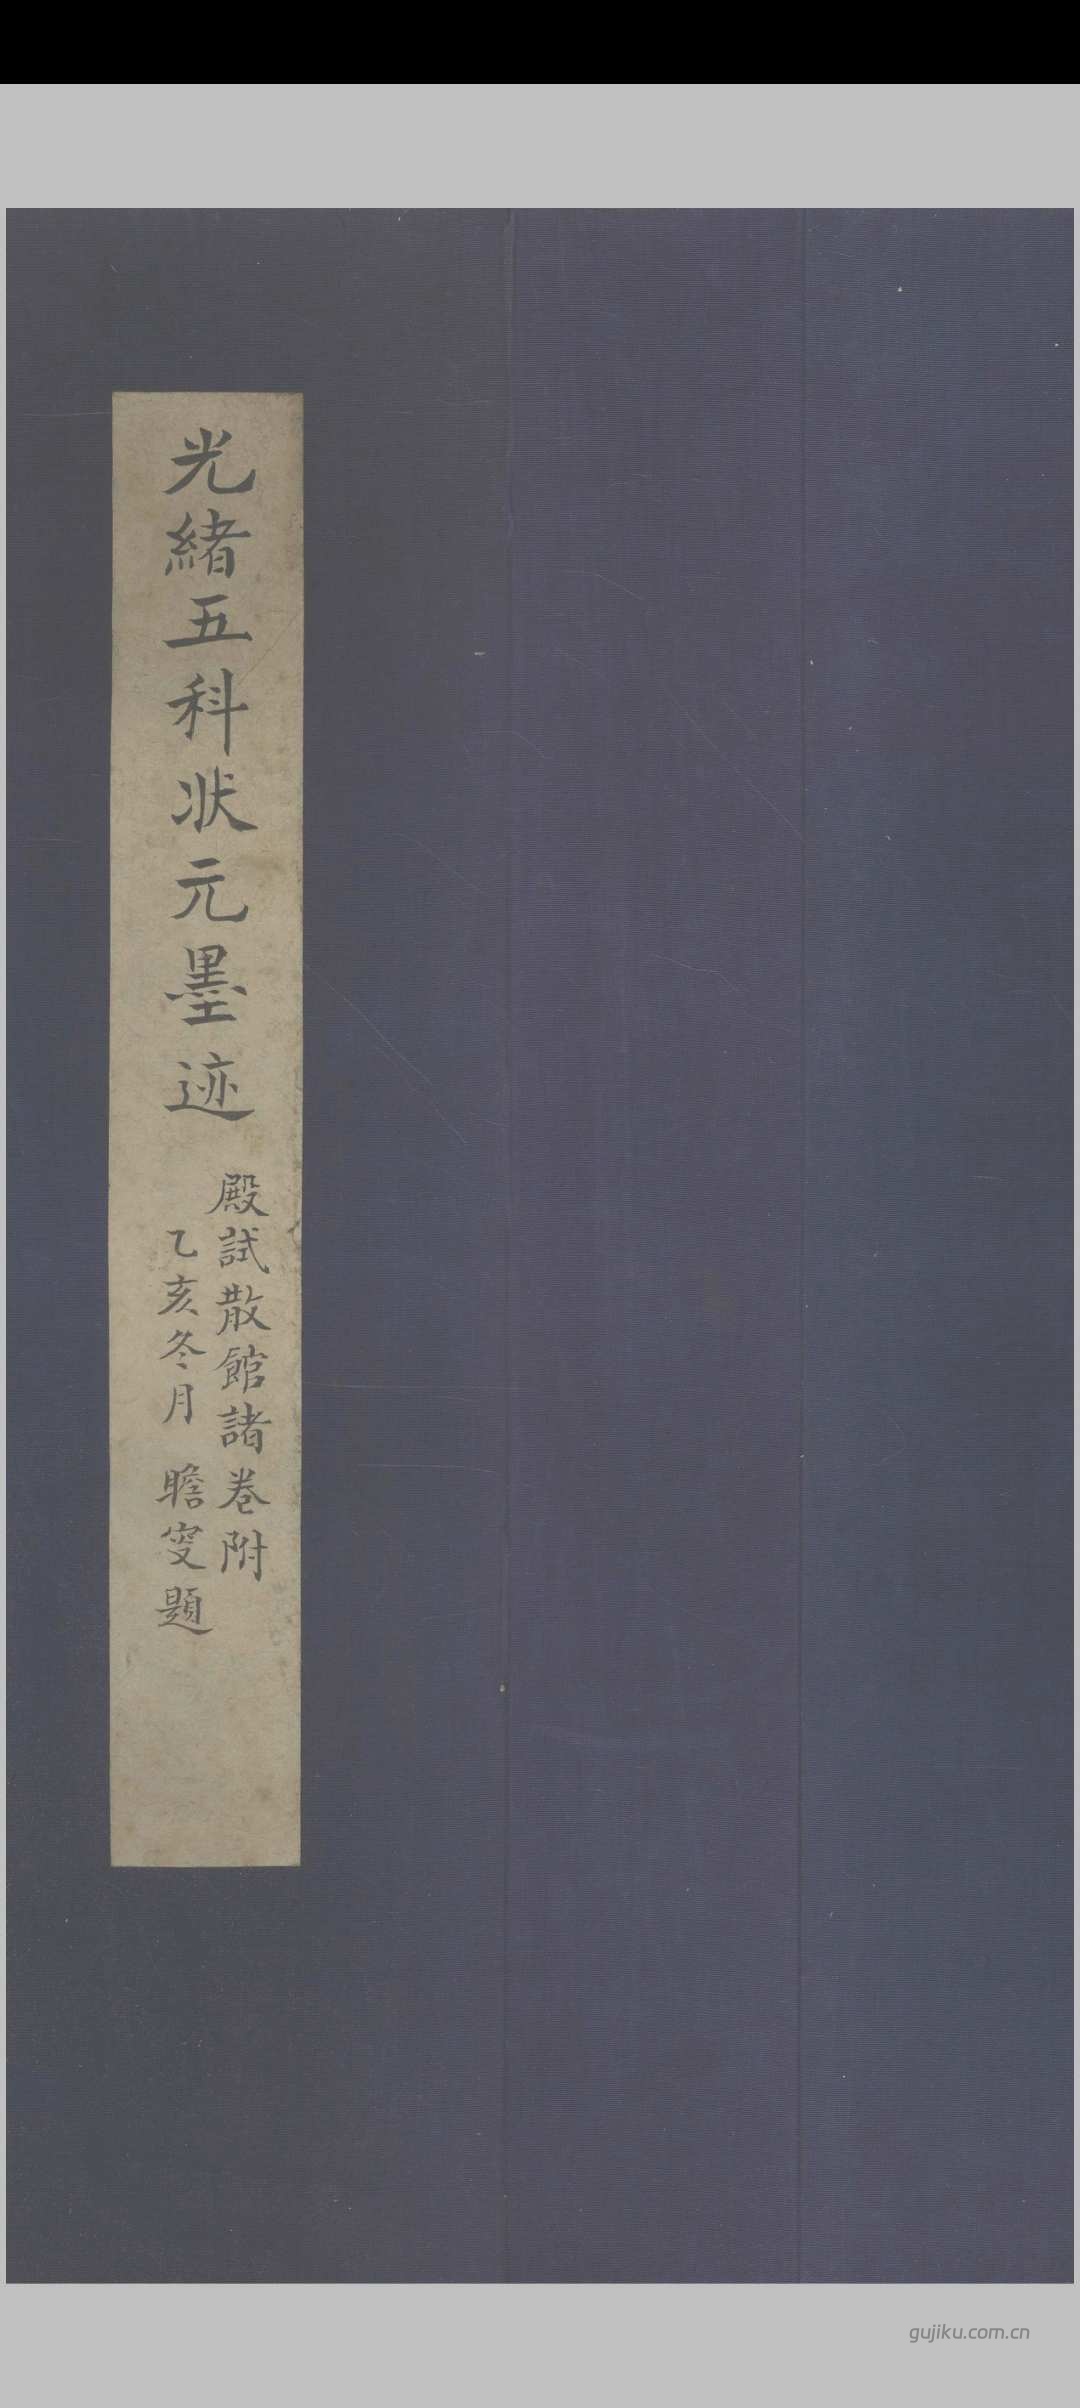 光緒五科状元墨迹
殿試散館諸卷附
乙亥冬月 瞻叟題
gujiku.com.cn